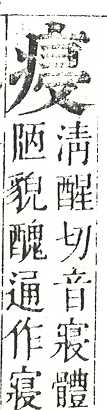 清醒切音寢體
陋貌醜通作寢